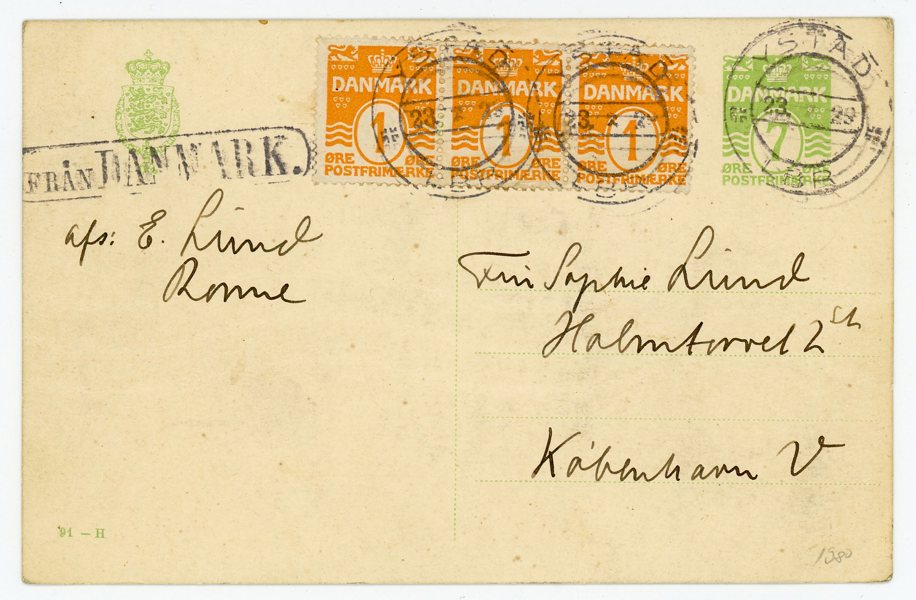 FRÅN DANMARK.
DANMARK
1
ØRE
POSTFRIMÆRKE
DANMARK
1
ØRE
POSTFRIMÆRKE
DANMARK
1
ØRE
POSTFRIMÆRKE
DANMARK
7
ØRE
POSTFRIMÆRKE
YSTAD
23
YSTAD
23
YSTAD
23 29
LBR
afs: E. Lund
Rønne
Sophie Lund
Halmtorvet 2
København V
91 – H